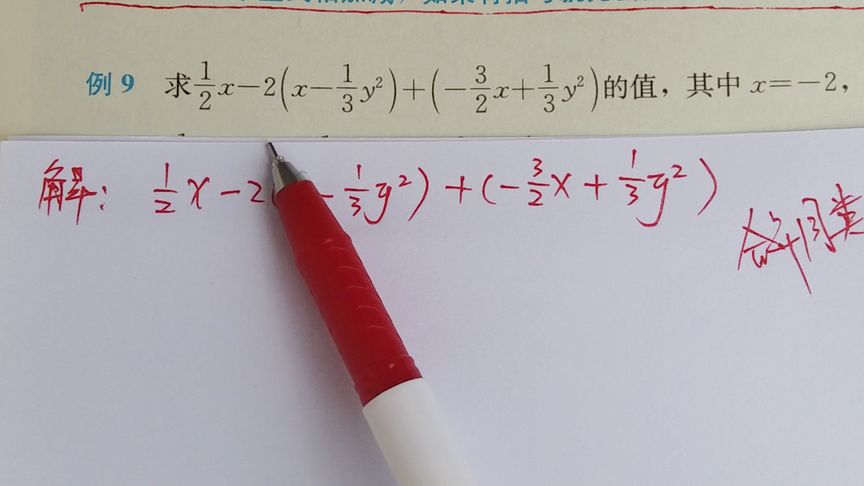 例 9 求\frac{1}{2}x-2(x-\frac{1}{3}y²)+(-\frac{3}{2}x+\frac{1}{3}y²)的值,其中 x=-2,
解: \frac{1}{2}x-2( -\frac{1}{3}y²)+(-\frac{3}{2}x+\frac{1}{3}y²)
合并同类